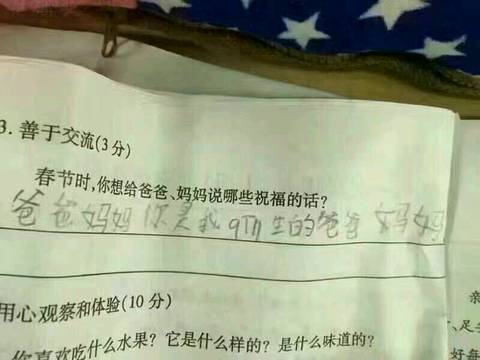 3. 善于交流(3分)
春节时,你想给爸爸、妈妈说哪些祝福的话?
爸爸妈妈你是我qin生的爸爸妈妈
用心观察和体验(10分)
你喜欢吃什么水果?它是什么样的?是什么味道的?
亲
、足
好每